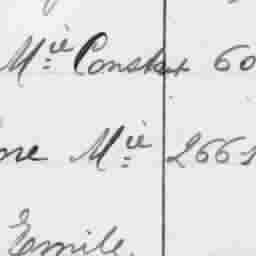 Mie Constant 60
ne Mie 266-1
Emile